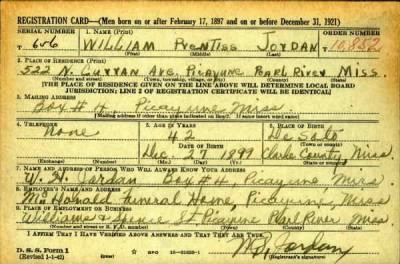 REGISTRATION CARD—(Men born on or after February 17, 1897 and on or before December 31, 1921)
SERIAL NUMBER 1. NAME (Print) ORDER NUMBER
U 646 WILLIAM Prentiss Jordan 10,852
(First) (Middle) (Last)
2. PLACE OF RESIDENCE (Print)
522 N. Curran Ave. Picayune Pearl River Miss.
(Number and street) (Town, township, village, or city) (County) (State)
[THE PLACE OF RESIDENCE GIVEN ON THE LINE ABOVE WILL DETERMINE LOCAL BOARD
JURISDICTION; LINE 2 OF REGISTRATION CERTIFICATE WILL BE IDENTICAL]
3. MAILING ADDRESS
Box # 4, Picayune Miss
[Mailing address if other than place indicated on line 2. If same insert word same]
4. TELEPHONE 5. AGE IN YEARS 6. PLACE OF BIRTH
None 42 De Soto
DATE OF BIRTH (Town or county)
Dec. 27 1899 Clarke County, Miss.
(Exchange) (Number) (Mo.) (Day) (Yr.) (State or country)
7. NAME AND ADDRESS OF PERSON WHO WILL ALWAYS KNOW YOUR ADDRESS
Jordan Box # 4, Picayune Miss
8. EMPLOYER'S NAME AND ADDRESS
McDonald Funeral Home, Picayune, Miss
9. PLACE OF EMPLOYMENT OR BUSINESS
Williams & St Picayune Pearl River Miss
(Number and street or R. F. D. number) (Town) (County) (State)
I AFFIRM THAT I HAVE VERIFIED ABOVE ANSWERS AND THAT THEY ARE TRUE.
D. S. S. Form 1
(Revised 1-1-42) GPO Jordan
(Registrant's signature)